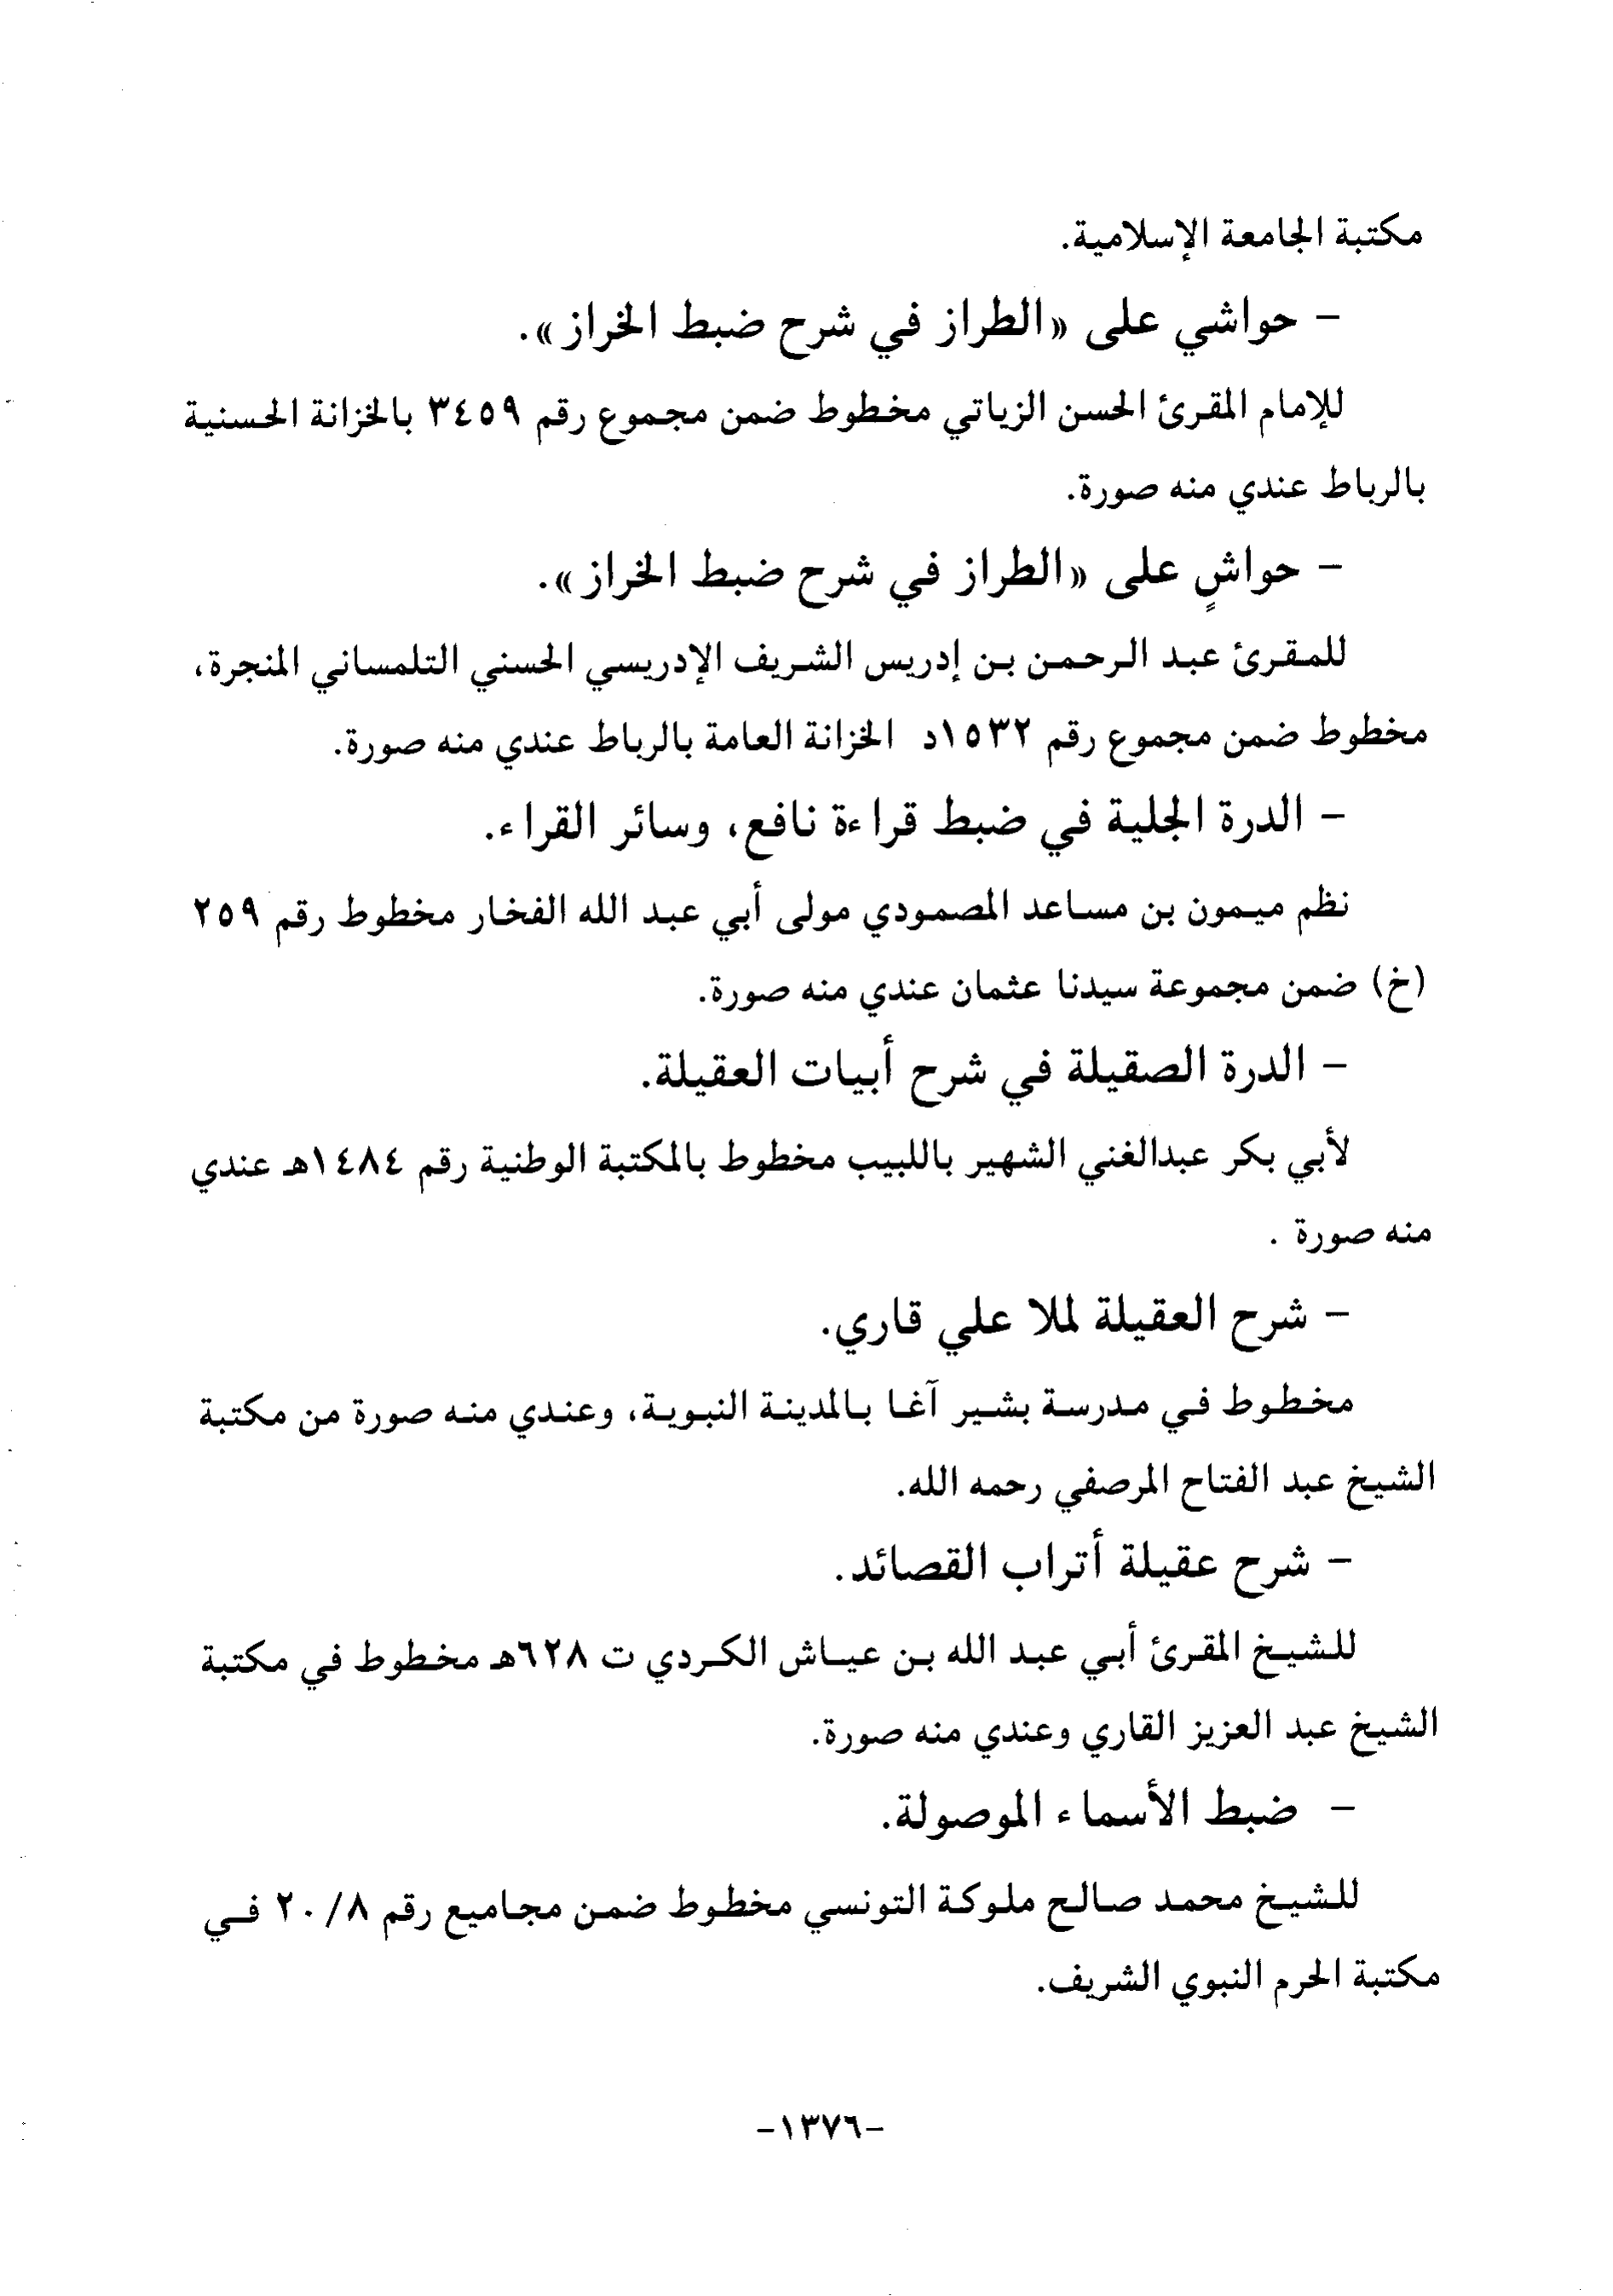 مكتبة الجامعة الإسلامية.
- حواشي على «الطراز في شرح ضبط الخراز».
للإمام المقرئ الحسن الزياتي مخطوط ضمن مجموع رقم ٣٤٥٩ بالخزانة الحسنية
بالرباط عندي منه صورة.
- حواشٍ على «الطراز في شرح ضبط الخراز».
للمقرئ عبد الرحمن بن إدريس الشريف الإدريسي الحسني التلمساني المنجرة،
مخطوط ضمن مجموع رقم ١٥٣٢د الخزانة العامة بالرباط عندي منه صورة.
- الدرة الجلية في ضبط قراءة نافع، وسائر القراء.
نظم ميمون بن مساعد المصمودي مولى أبي عبد الله الفخار مخطوط رقم ٢٥٩
(خ) ضمن مجموعة سيدنا عثمان عندي منه صورة.
- الدرة الصقيلة في شرح أبيات العقيلة.
لأبي بكر عبدالغني الشهير باللبيب مخطوط بالمكتبة الوطنية رقم ١٤٨٤هـ عندي
منه صورة .
- شرح العقيلة لملا علي قاري.
مخطوط في مدرسة بشير آغا بالمدينة النبوية، وعندي منه صورة من مكتبة
الشيخ عبد الفتاح المرصفي رحمه الله.
- شرح عقيلة أتراب القصائد.
للشيخ المقرئ أبي عبد الله بن عياش الكردي ت ٦٢٨هـ مخطوط في مكتبة
الشيخ عبد العزيز القاري وعندي منه صورة.
- ضبط الأسماء الموصولة.
للشيخ محمد صالح ملوكة التونسي مخطوط ضمن مجاميع رقم ٢٠/٨ في
مكتبة الحرم النبوي الشريف.
-١٣٧٦-